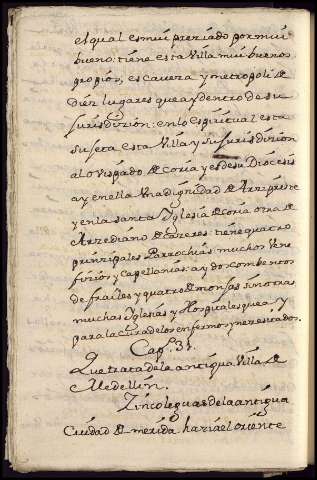 el qual es mui preziado por mui
bueno: tiene esta Villa mui buenos
propios, es cavera y metropoli de
Diez lugares que ay dentro de su
jurisdizion: en lo Espiritual esta
sujeta esta Villa y su jurisdizion
al Ovispado de Coria y es de su Diocesis
ay en ella Una dignidad de Arzipreste
y en la santa Yglesia de Coria otra de
Arzediano de Cazeres: tiene quatro
prinzipales Parrochias muchos Vene
fizios y capellanias: ay dos combentos
de frailes y quatro de monjas sin otras
muchas Yglesias y Hospitales que ay
para la Cura de los enfermos y nezesitados.
Cap.º 31.
Que trata de la antiqua Villa de
Medellin.
Zinco leguas de la antigua
Ciudad de merida hazia el oriente